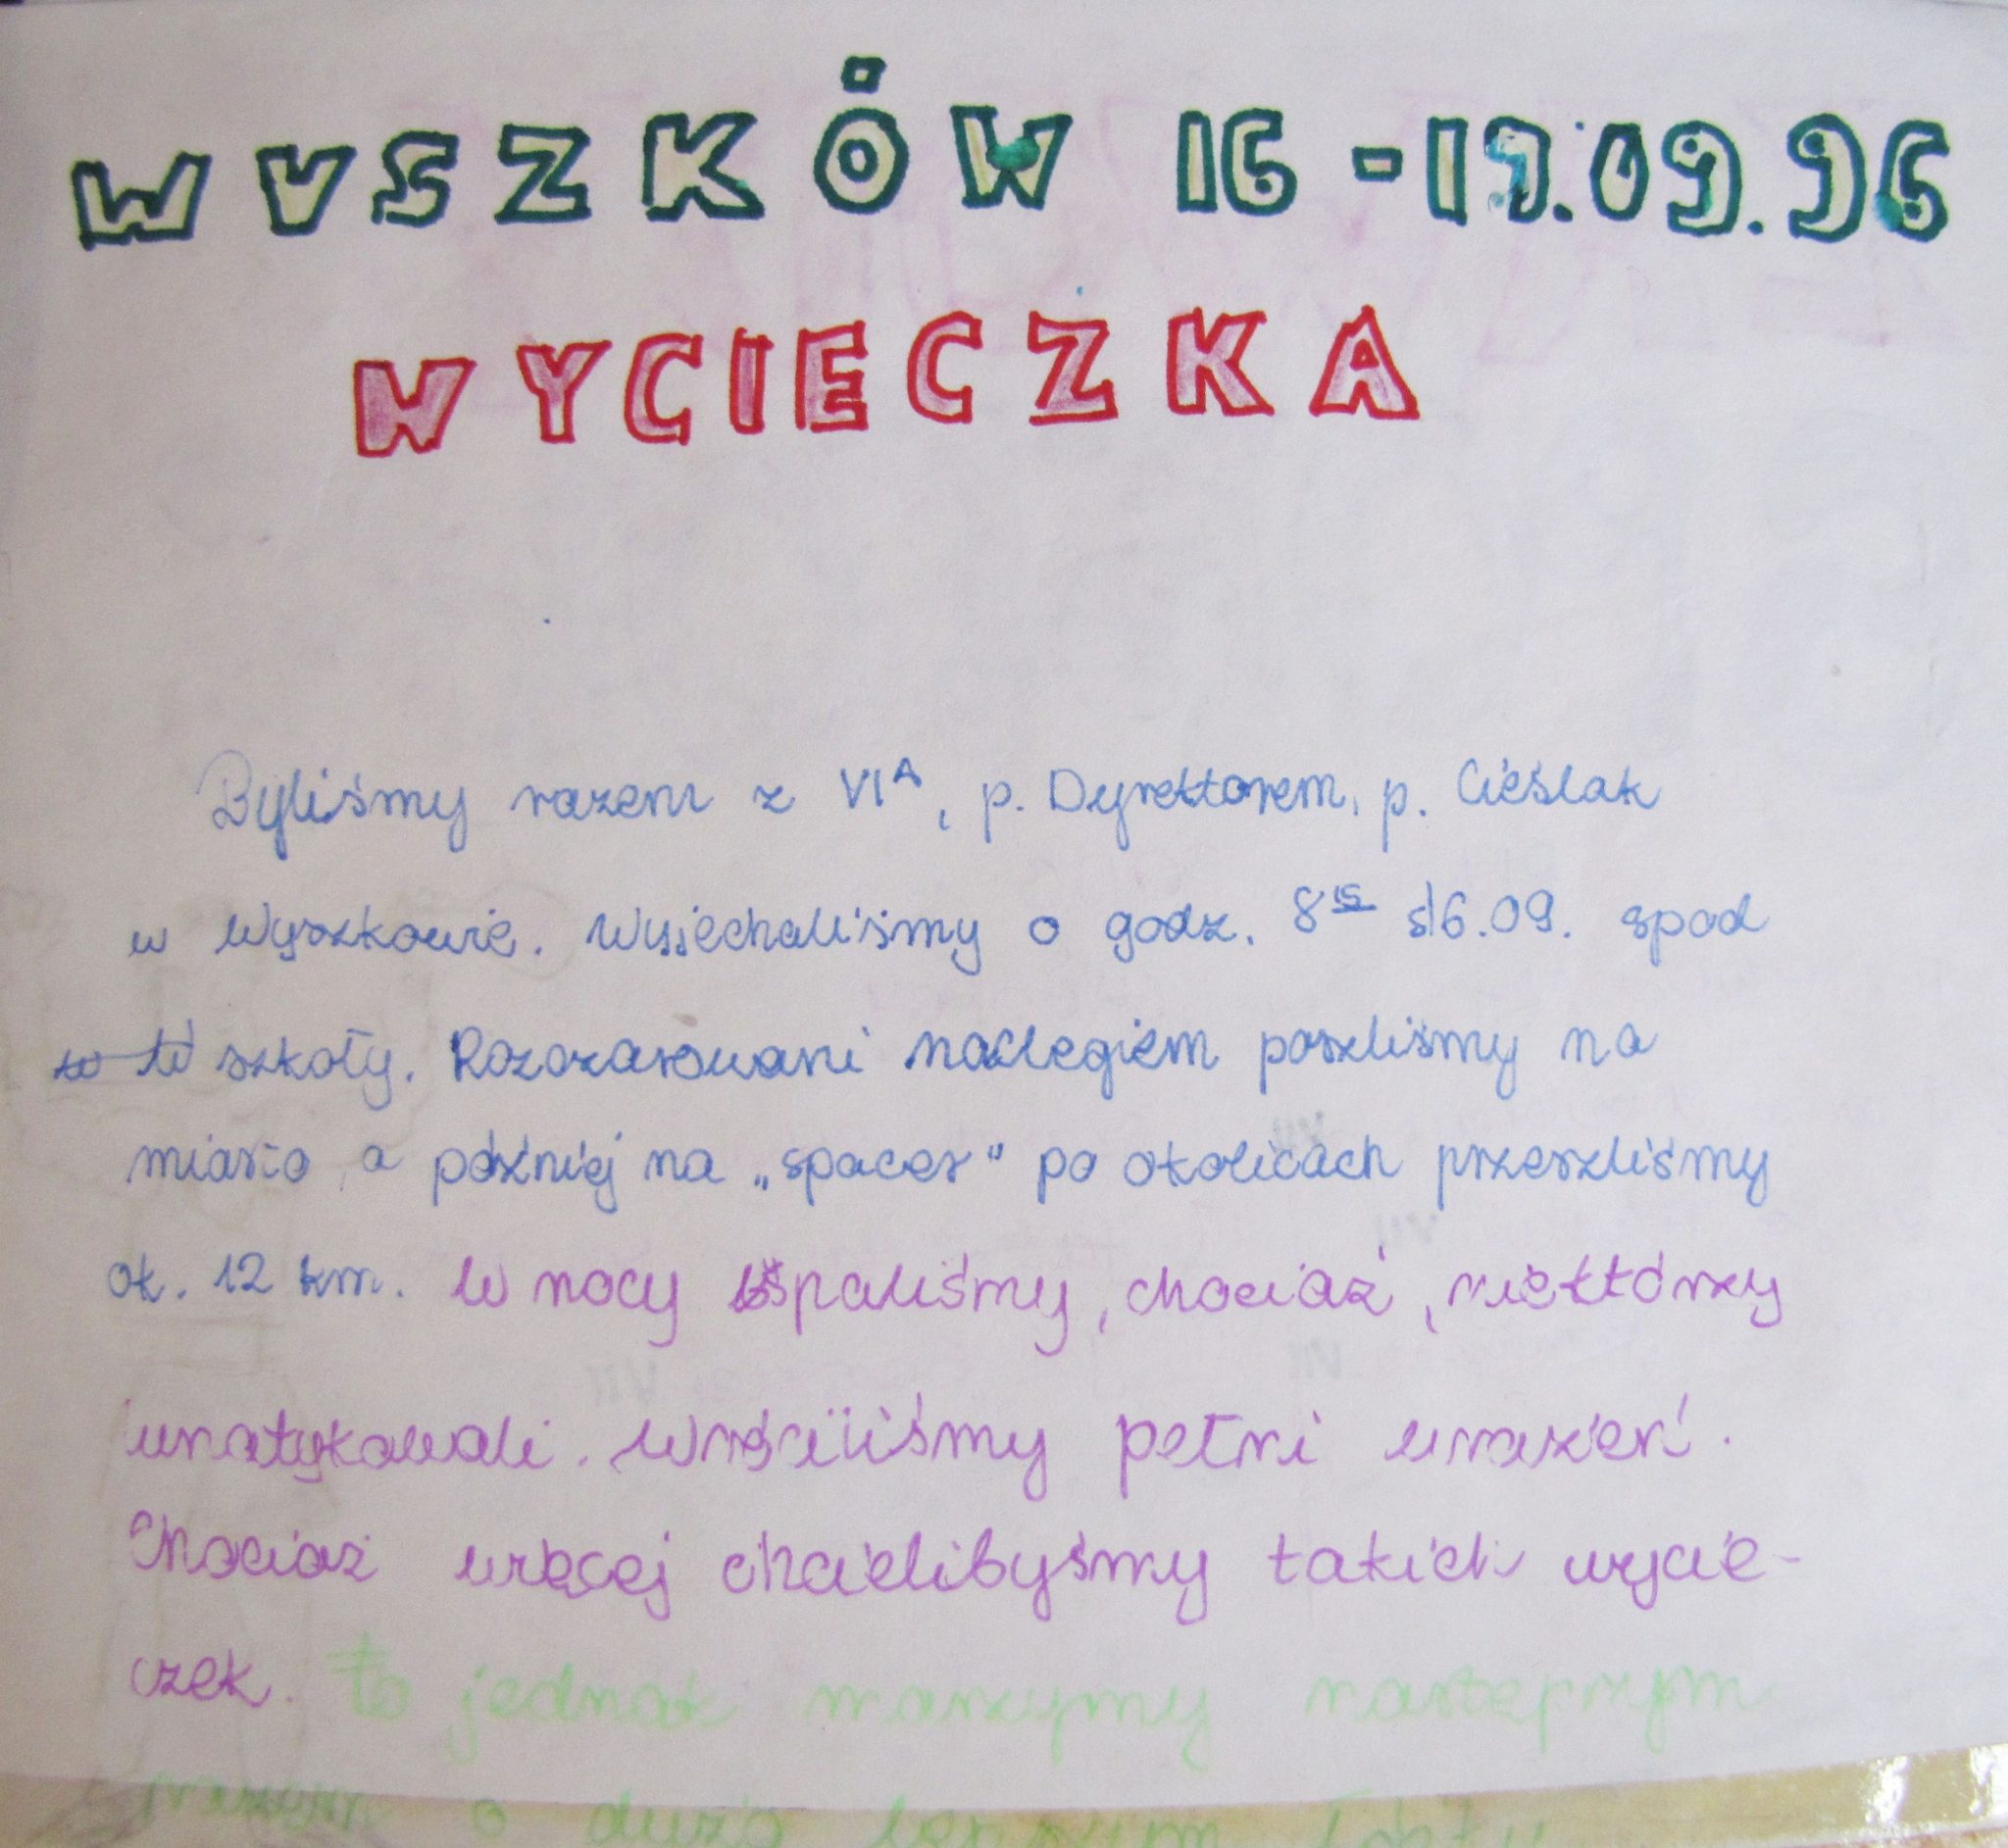 WYSZKÓW 16-17.09.96
WYCIECZKA
Byliśmy razem z VIA, p. Dyrektorem, p. Cieślak
w Wyszkowie. Wyjechaliśmy o godz. 8 15 16.09. spod
szkoły. Rozczarowani noclegiem poszliśmy na
miasto, a później na „spacer" po okolicach przeszliśmy
ok. 12 km. W nocy spaliśmy, chociaż, niektórzy
Wróciliśmy pełni wrażeń.
Chociaż więcej chcielibyśmy takich wycie-
czek. To jednak marzymy następnym
razem o dużo lepszym